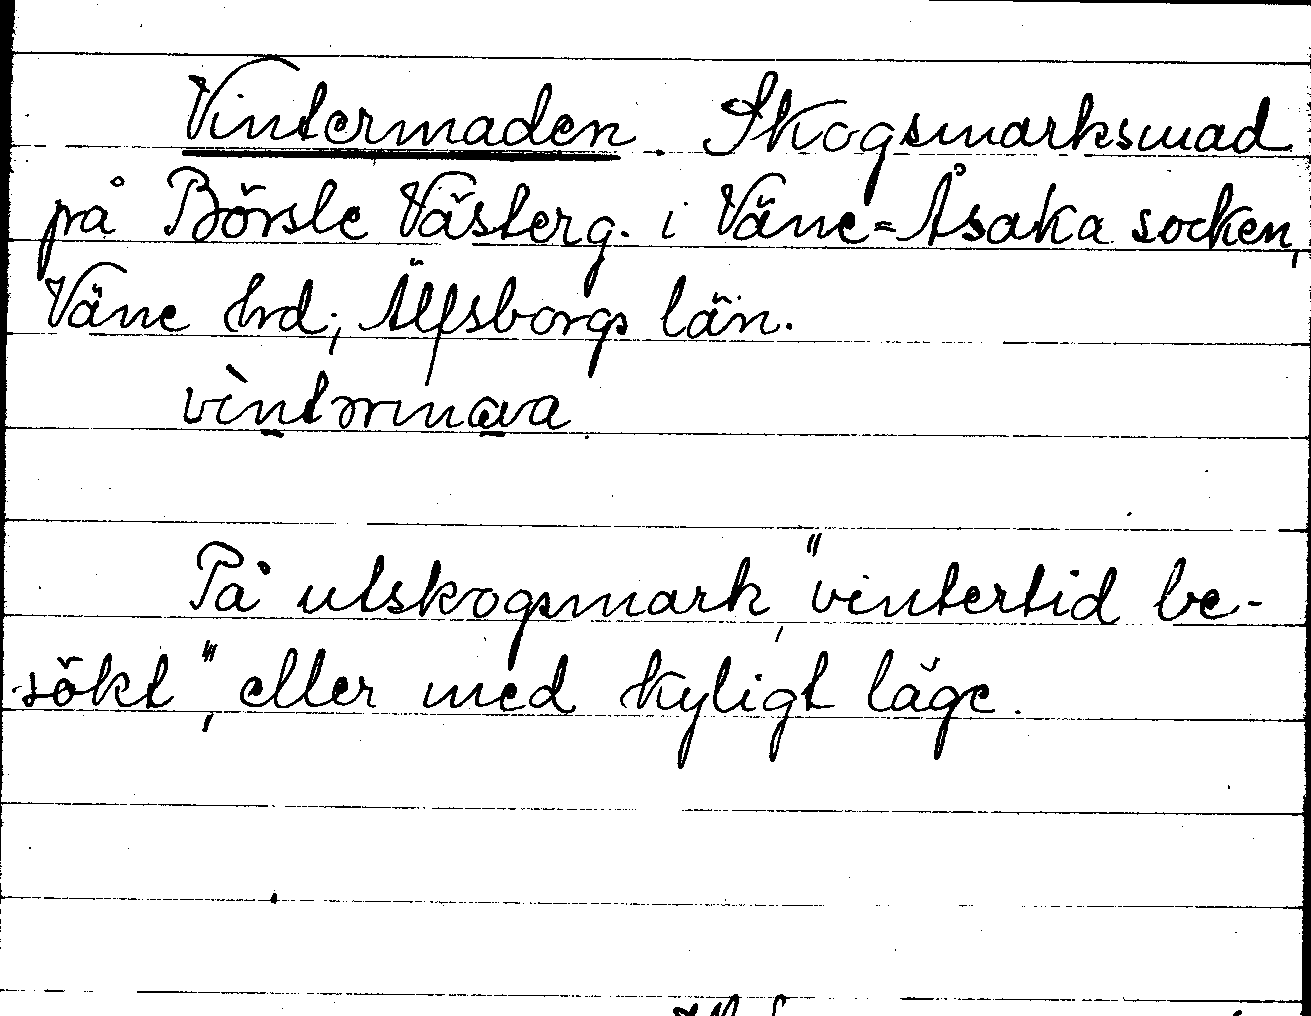 Vintermaden. Skogsmarksmad
på Börsle Västerg. i Väne=Åsaka socken,
Väne hrd; Älfsborgs län.
vìntərmava
På utskogsmark, "vintertid be-
sökt", eller med kyligt läge.